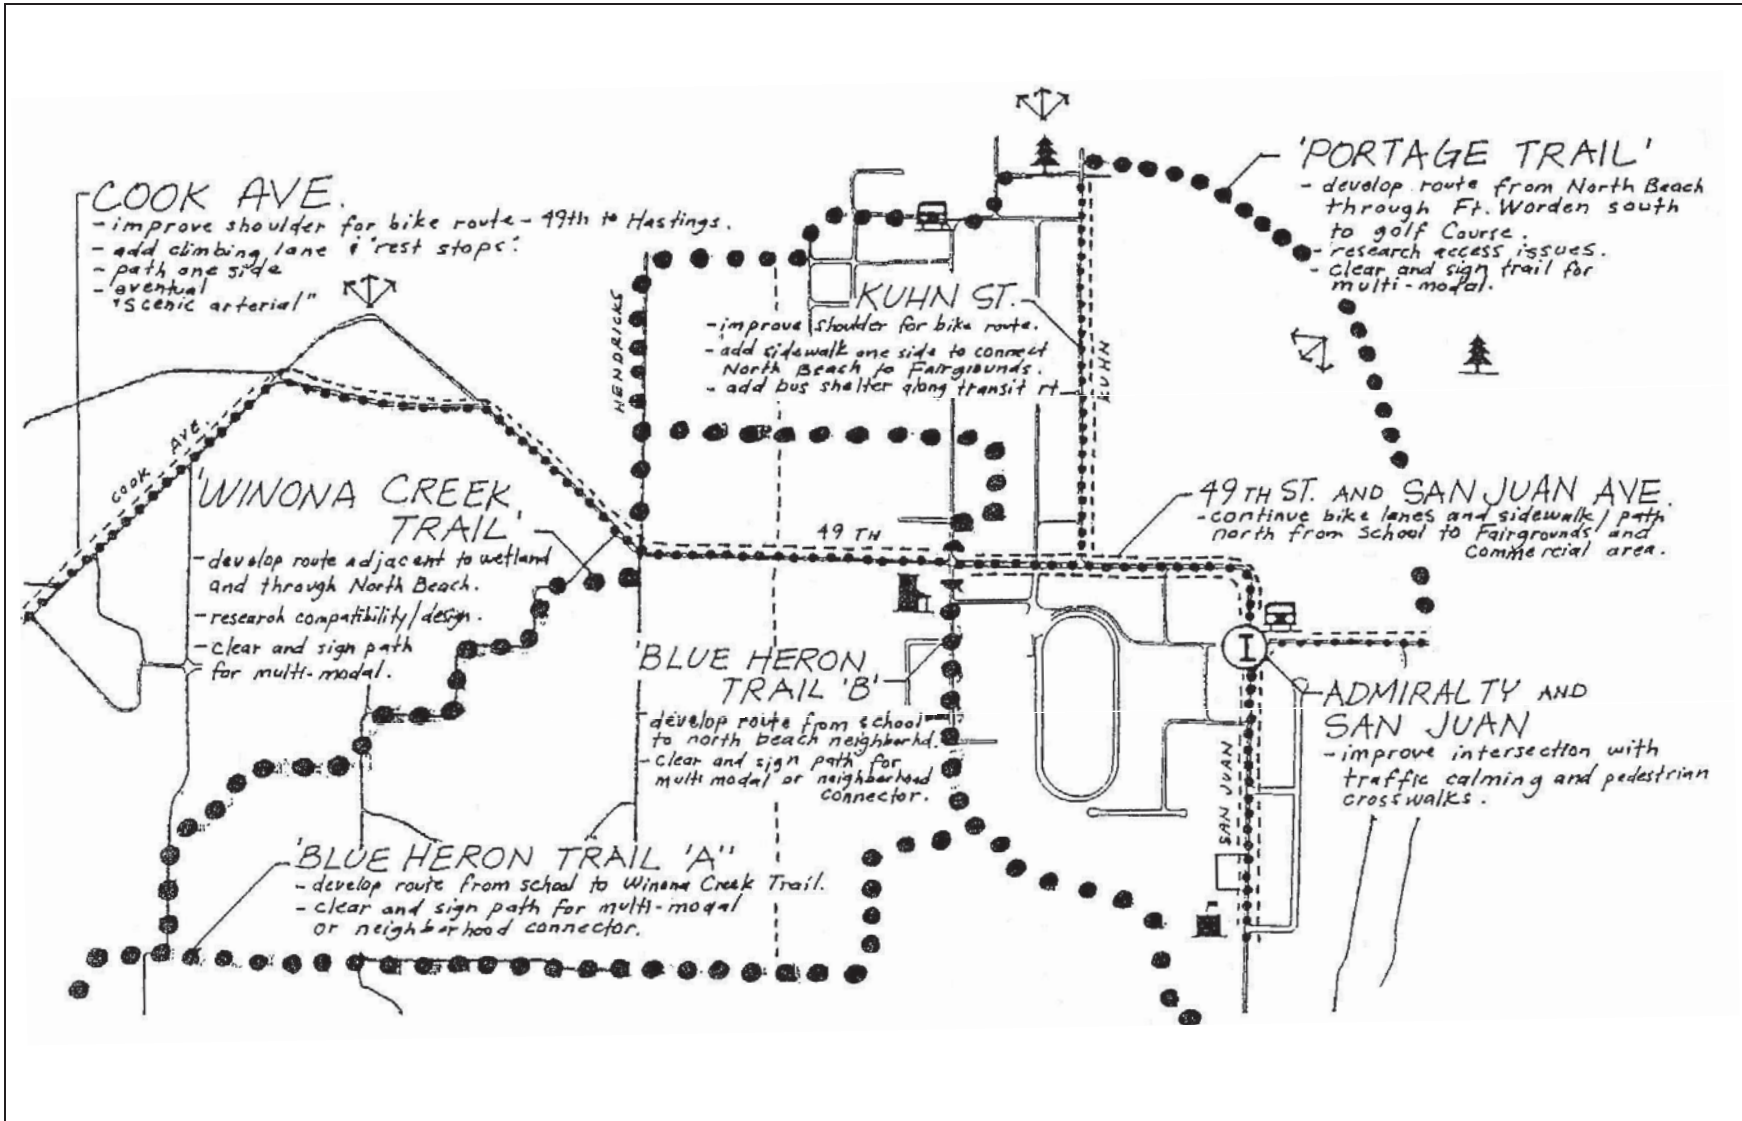 COOK AVE.
- improve shoulder for bike route - 49th to Hastings.
- add climbing lane & 'rest stops'.
- path one side
- eventual
"scenic arterial"
'PORTAGE TRAIL'
- develop route from North Beach
through Ft. Worden south
to golf Course.
- research access issues.
- clear and sign trail for
multi-modal.
HENDRICKS
KUHN ST.
- improve shoulder for bike route.
- add sidewalk one side to connect
North Beach to Fairgrounds.
- add bus shelter along transit rt.
KUHN
COOK AVE.
'WINONA CREEK
TRAIL'
- develop route adjacent to wetland
and through North Beach.
- research compatibility/design.
- clear and sign path
for multi-modal.
49 TH
49TH ST. AND SAN JUAN AVE.
- continue bike lanes and sidewalk/path
north from School to Fairgrounds and
Commercial area.
'BLUE HERON
TRAIL 'B'
- develop route from school
to north beach neighborhd.
- Clear and sign path for
multi modal or neighborhood
connector.
I
ADMIRALTY AND
SAN JUAN
- improve intersection with
traffic calming and pedestrian
crosswalks.
SAN JUAN
'BLUE HERON TRAIL 'A''
- develop route from school to Winona Creek Trail.
- clear and sign path for multi-modal
or neighborhood connector.